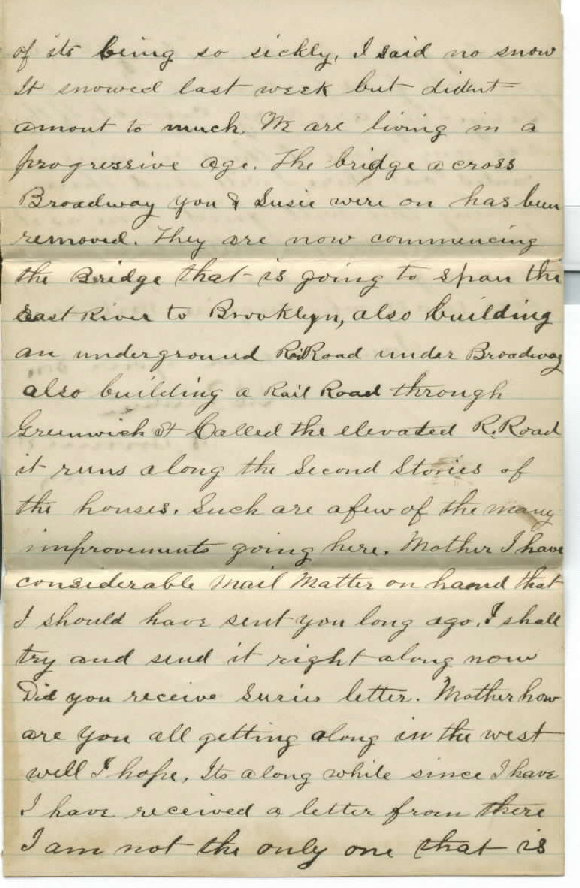 of its being so sickly, I said no snow
It snowed last week but dident
amout to much. We are living in a
progressive age. The bridge across
Broadway you & Susie were on has been
removed. They are now commencing
the Bridge that is going to span the
East River to Brooklyn, also building
an underground RailRoad under Broadway
also building a Rail Road through
Greenwich St Called the elevated R. Road
it runs along the Second Stories of
the houses. Such are afew of the many
improvements going here. Mother I have
considerable Mail Matter on hand that
I should have sent you long ago. I shall
try and send it right along now
Did you receive Suries letter. Mother how
are you all getting along in the west
well I hope. Its along while since I have
I have received a letter from there
I am not the only one that is